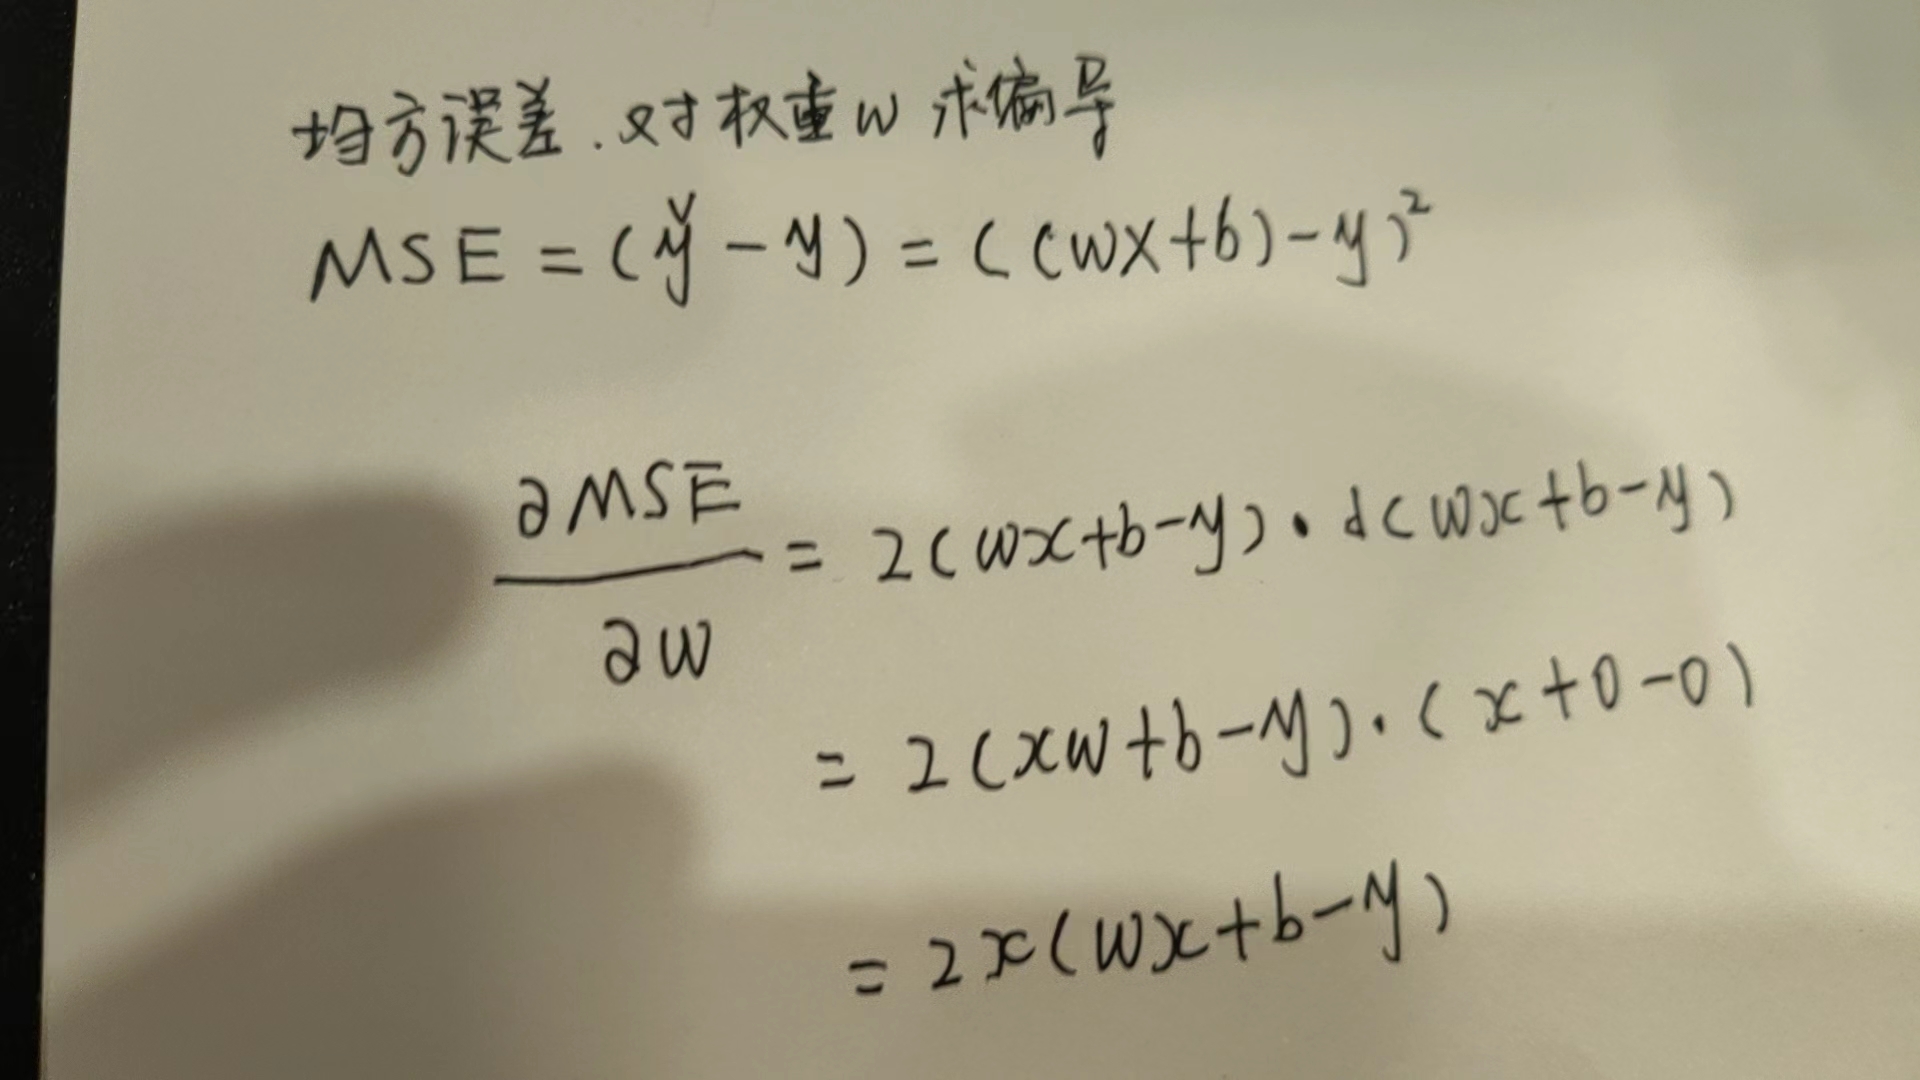 均方误差.对权重w求偏导
MSE = (y̌ - y) = ((wx+b)-y)²
∂MSE/∂w = 2(wx+b-y)·d(wx+b-y)
= 2(xw+b-y)·(x+0-0)
= 2x(wx+b-y)